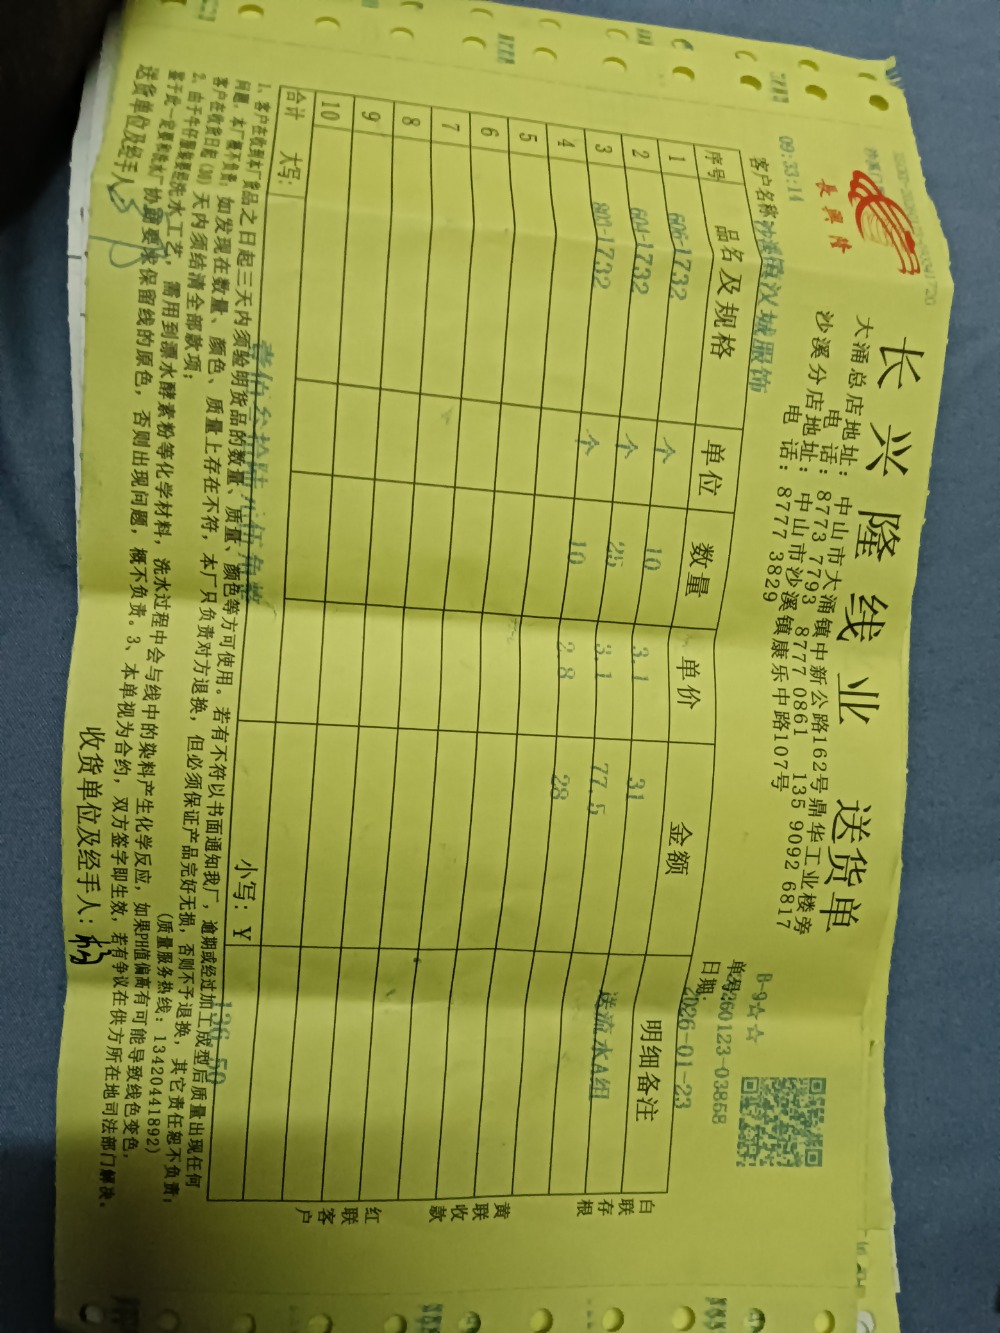 长兴隆线业 送货单
長興隆
大涌总店地址：中山市大涌镇中新公路162号鼎华工业楼旁
电 话：8773 7793 8777 0861 135 9092 6817
沙溪分店地址：中山市沙溪镇康乐中路107号
电 话：8777 3829
09:33:14
B-9☆☆
单号: 260123-03858
客户名称 沙溪镇汉城服饰
日期: 2026-01-23
序号 品名及规格 单位 数量 单价 金额 明细备注
1 606-1732 个 10 3.1 31
2 604-1732 个 25 3.1 77.5 送流水A组
3 803-1732 个 10 2.8 28
4
5
6
7
8
9
10
合计 大写: 壹佰叁拾陆元伍角整 小写: ¥ 136.50
白联存根
黄联收款
红联客户
1、客户在收到本厂货品之日起三天内须验明货品的数量、质量、颜色等方可使用。若有不符以书面通知我厂，逾期或经过加工成型后质量出现任何
问题，本厂概不负责；如发现在数量、颜色、质量上存在不符，本厂只负责对方退换，但必须保证产品完好无损，否则不予退换，其它责任恕不负责；
客户在收货日起(30)天内须结清全部款项； (质量服务热线：13420441892)
2、由于牛仔服装要经洗水工艺，需用到漂水酵素粉等化学材料，洗水过程中会与线中的染料产生化学反应，如果PH值偏高有可能导致线色变色，
鉴于此一定要和洗水厂协商要求保留线的原色，否则出现问题，概不负责。3、本单视为合约，双方签字即生效，若有争议在供方所在地司法部门解决。
送货单位及经手人: 收货单位及经手人: